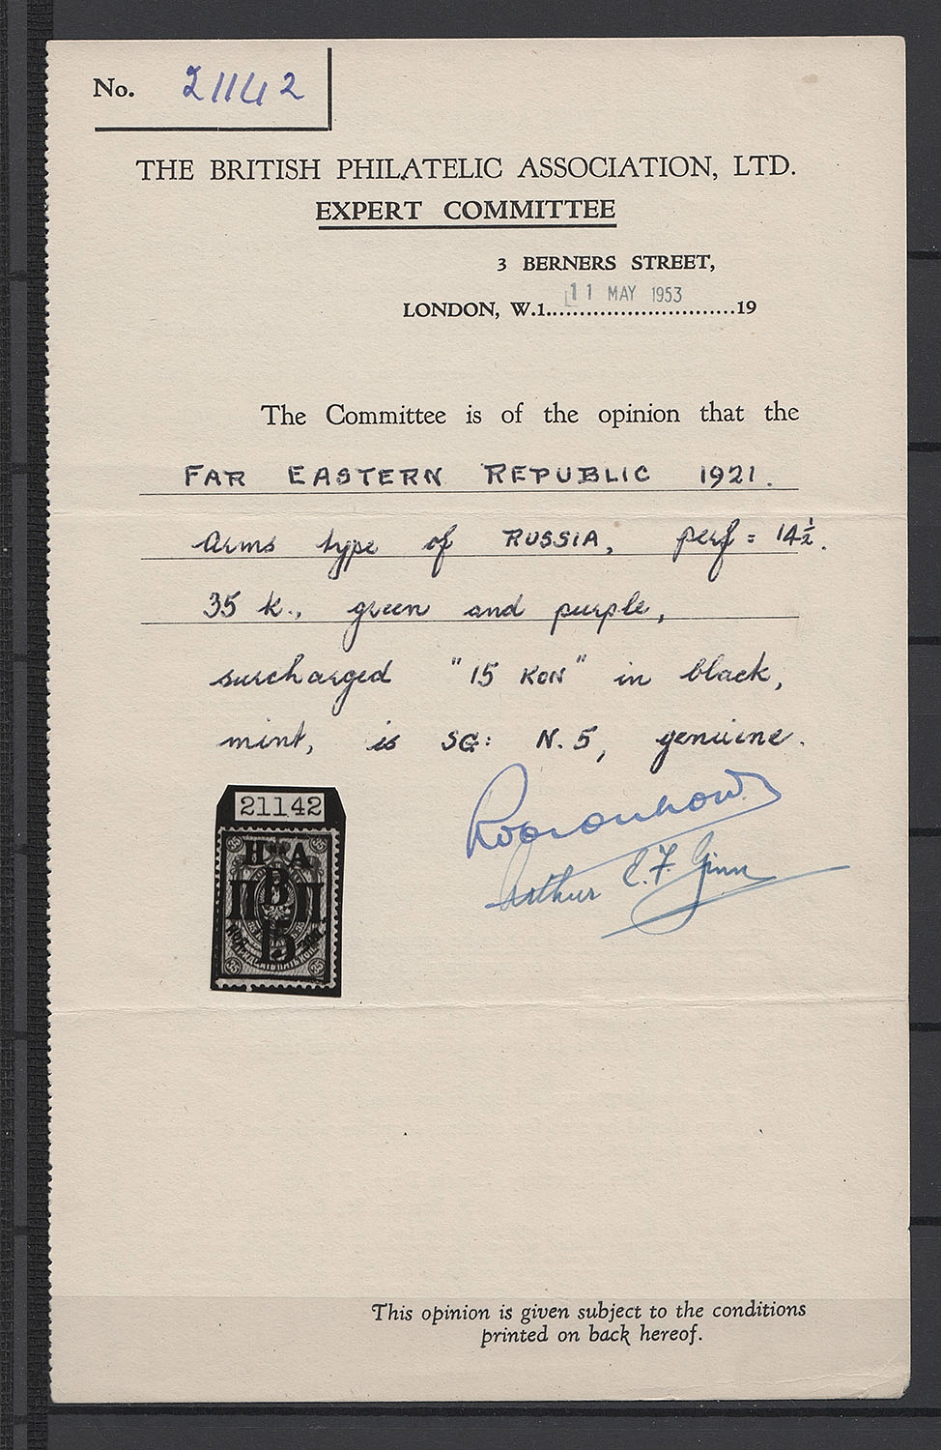 No. 21142
THE BRITISH PHILATELIC ASSOCIATION, LTD.
EXPERT COMMITTEE
3 BERNERS STREET,
11 MAY 1953
LONDON, W.1.............................19
The Committee is of the opinion that the
FAR EASTERN REPUBLIC 1921.
Arms type of RUSSIA, perf = 14½.
35 k., green and purple,
surcharged "15 KON" in black,
mint, is SG: N.5, genuine.
21142
Arthur E. F. Ginn
Н А
В
П П
15
35 35
This opinion is given subject to the conditions
printed on back hereof.